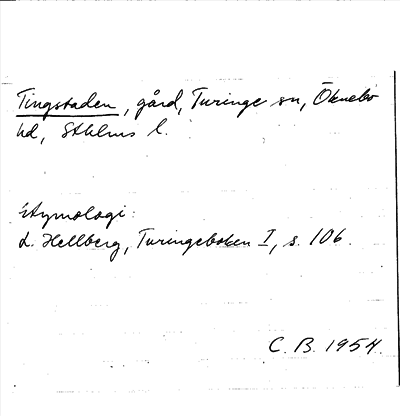 Tingstaden, gård, Turinge sn, Öknebo
hd, Sthlms l.
Etymologi:
L. Hellberg, Turingeboken I, s. 106.
C. B. 1954.